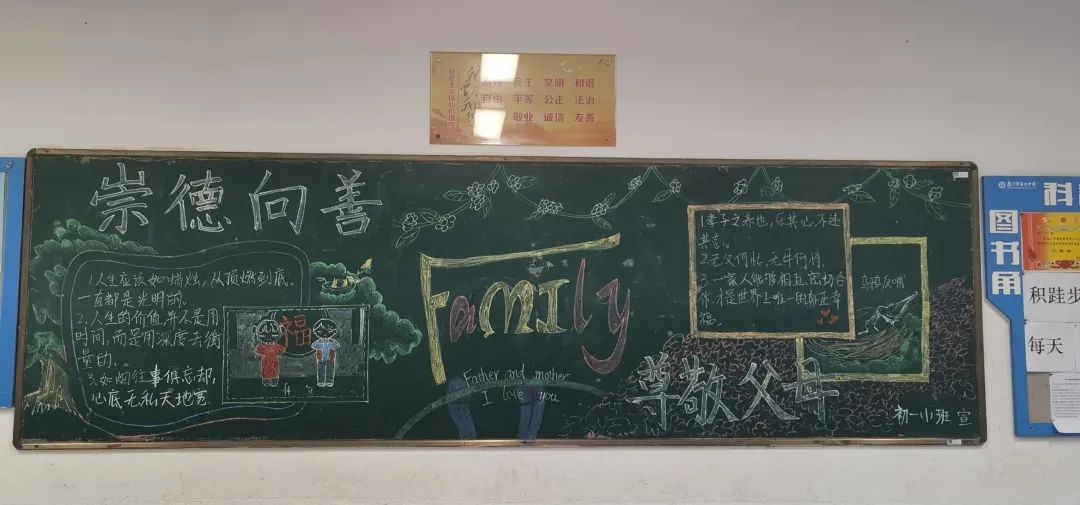 民主 文明 和谐
自由 平等 公正 法治
敬业 诚信 友善
社会主义核心价值观
崇德向善
1.人生应该如蜡烛,从顶燃到底,
一直都是光明的。
2.人生的价值,并不是用
时间,而是用深度去衡
量的。
3.如烟往事俱忘却,
心底无私天地宽
福
Family
Father and mother
I love you
1.孝子之养也,乐其心,不违
其志。
2.无父何怙,无母何恃。
3.一家人能够相互密切合
作,才是世界上唯一的真正幸
福。
乌鸦反哺
尊敬父母
初一小班 宣
科
图书角
积跬步
每天